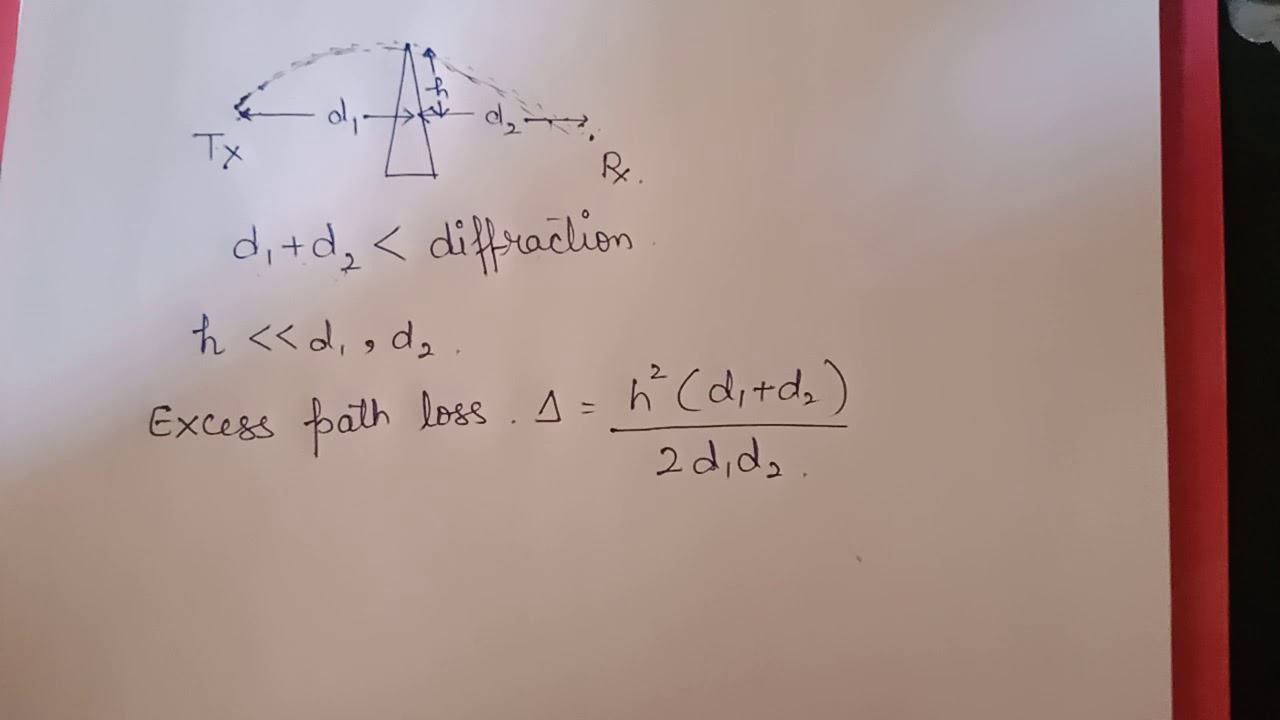 h
d₁ d₂
Tx
Rx.
d₁+d₂ < diffraction
h <<d₁, d₂.
Excess path loss. Δ = h²(d₁+d₂) / 2d₁d₂.